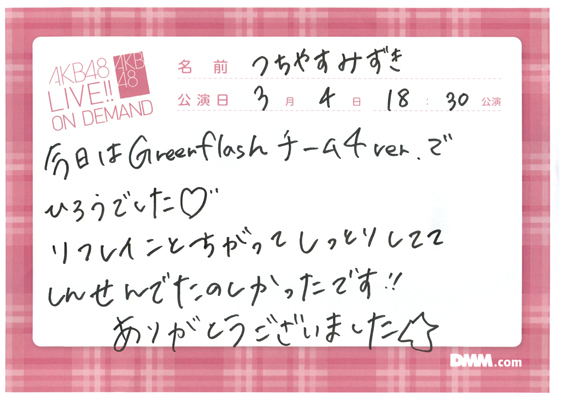 AKB48
LIVE!!
ON DEMAND
AKB
48
名前 つちやすみずき
公演日 3月4日 18:30公演
今日はGreenflashチーム4ver.で
ひろうでした♡
リフレインとちがってしっとりしてて
しんせんでたのしかったです!!
ありがとうございました☆
DMM.com